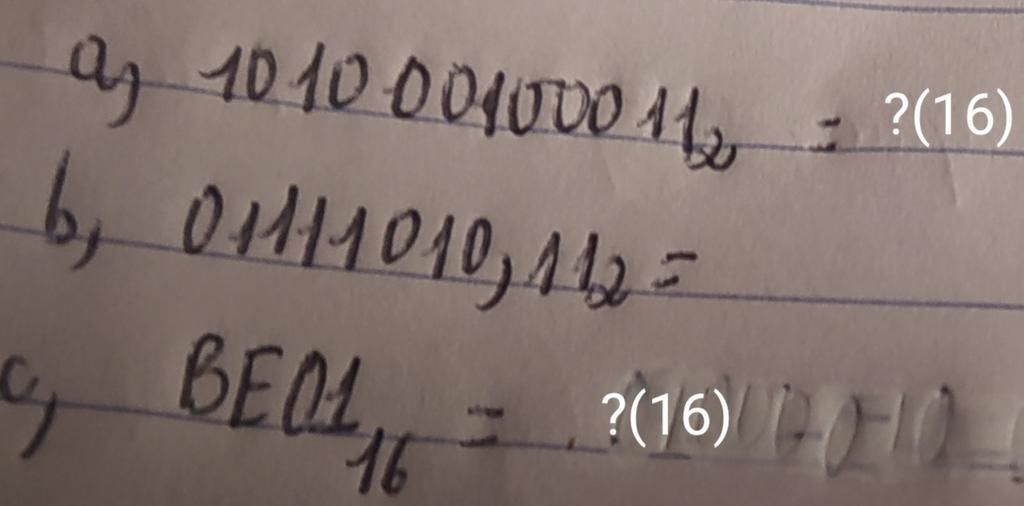 a, 1010001000112 = ?(16)
b, 01111010,112 =
c, BE0116 = ?(16)